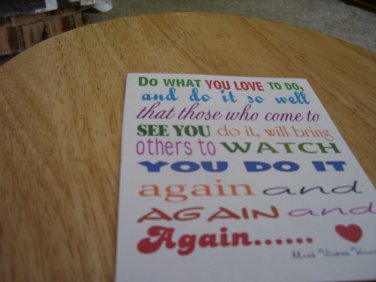 DO WHAT YOU LOVE TO DO,
and do it so well
that those who come to
SEE YOU do it, will bring
others to WATCH
YOU DO IT
again and
AGAIN and
Again......